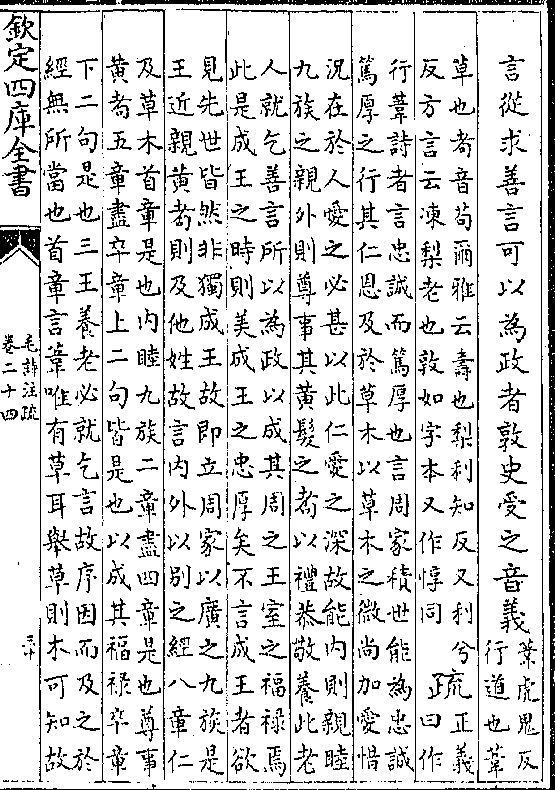 言從求善言可以為政者敦史受之音義葦虎鬼反
行道也葦
草也耉音茍爾雅云壽也梨利知反又利兮
反方言云凍梨老也敦如字本又作惇同
疏正義
曰作
行葦詩者言忠誠而篤厚也言周家積世能為忠誠
篤厚之行其仁恩及於草木以草木之微尚加愛惜
況在於人愛之必甚以此仁愛之深故能內則親睦
九族之親外則尊事其黃髮之耉以禮恭敬養此老
人就乞善言所以為政以成其周之王室之福祿焉
此是成王之時則美成王之忠厚矣不言成王者欲
見先世皆然非獨成王故即立周家以廣之九族是
王近親黃耉則及他姓故言內外以別之經八章仁
及草木首章是也內睦九族二章盡四章是也尊事
黃耉五章盡卒章上二句皆是也以成其福祿卒章
下二句是也三王養老必就乞言故序因而及之於
經無所當也首章言葦唯有草耳舉草則木可知故
欽定四庫全書
毛詩注疏
卷二十四
三十